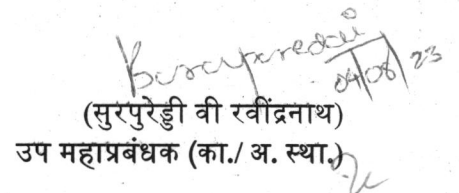 04/08/23
(सुरपुरेड्डी वी रवींद्रनाथ)
उप महाप्रबंधक (का./ अ. स्था.)